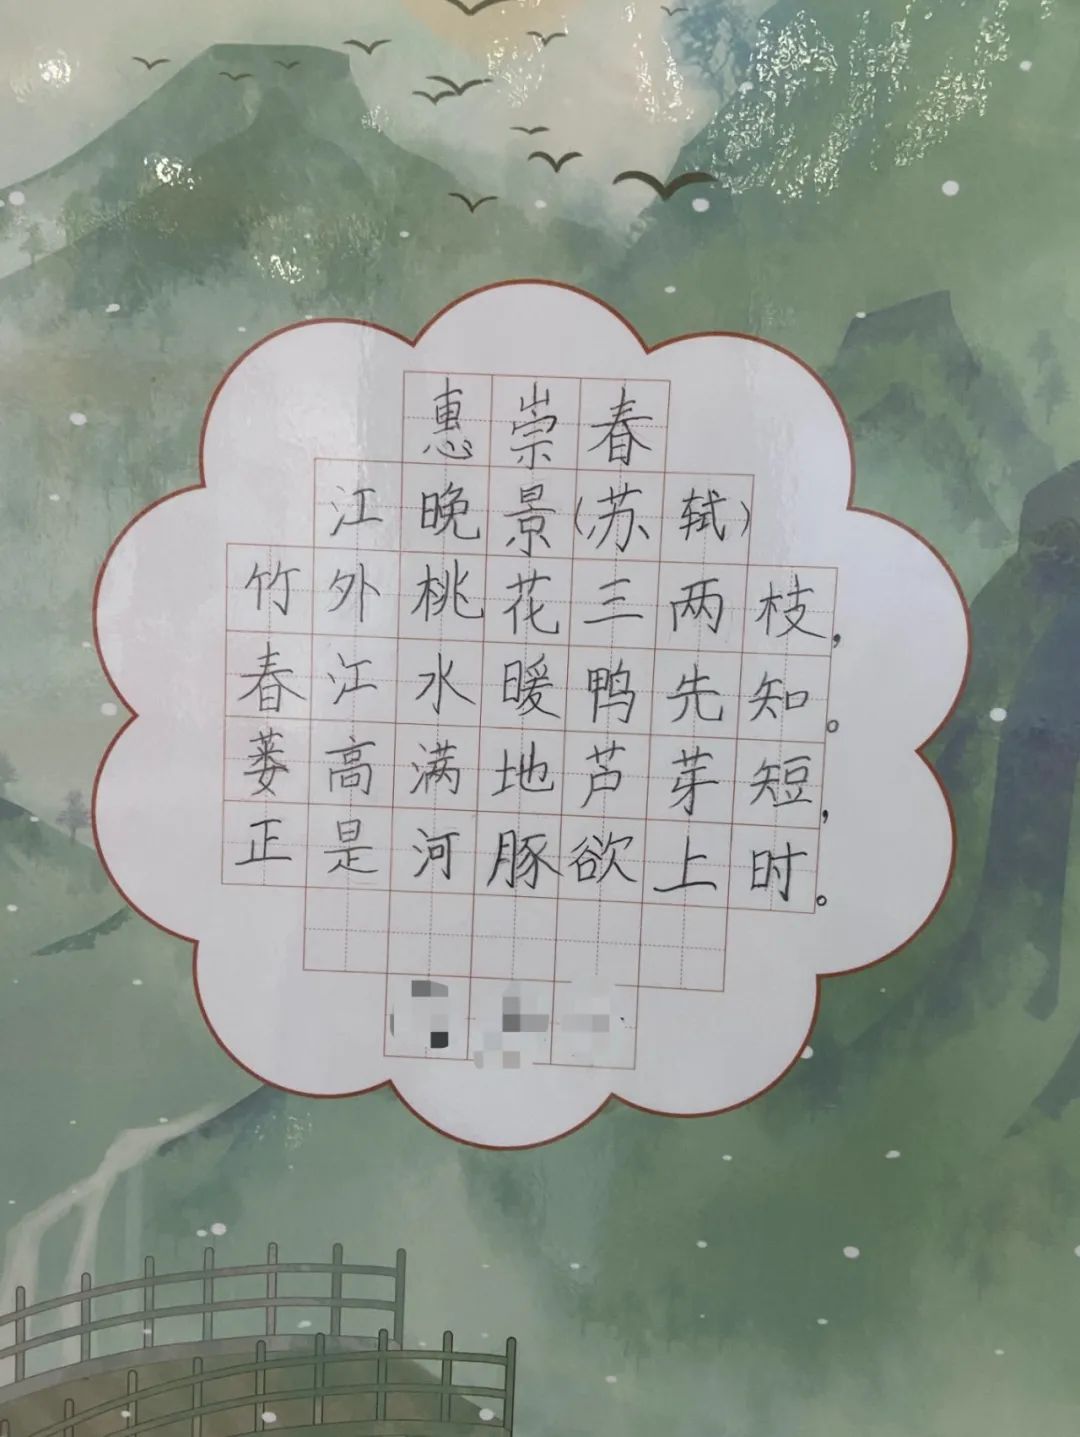 惠崇春
江晚景(苏轼)
竹外桃花三两枝,
春江水暖鸭先知。
蒌高满地芦芽短,
正是河豚欲上时。